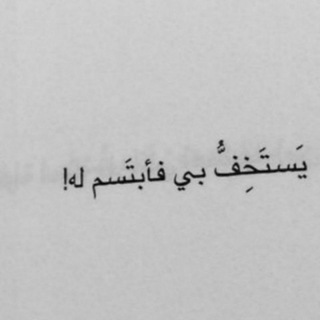 يَستَخِفُّ بي فأبتَسم له!